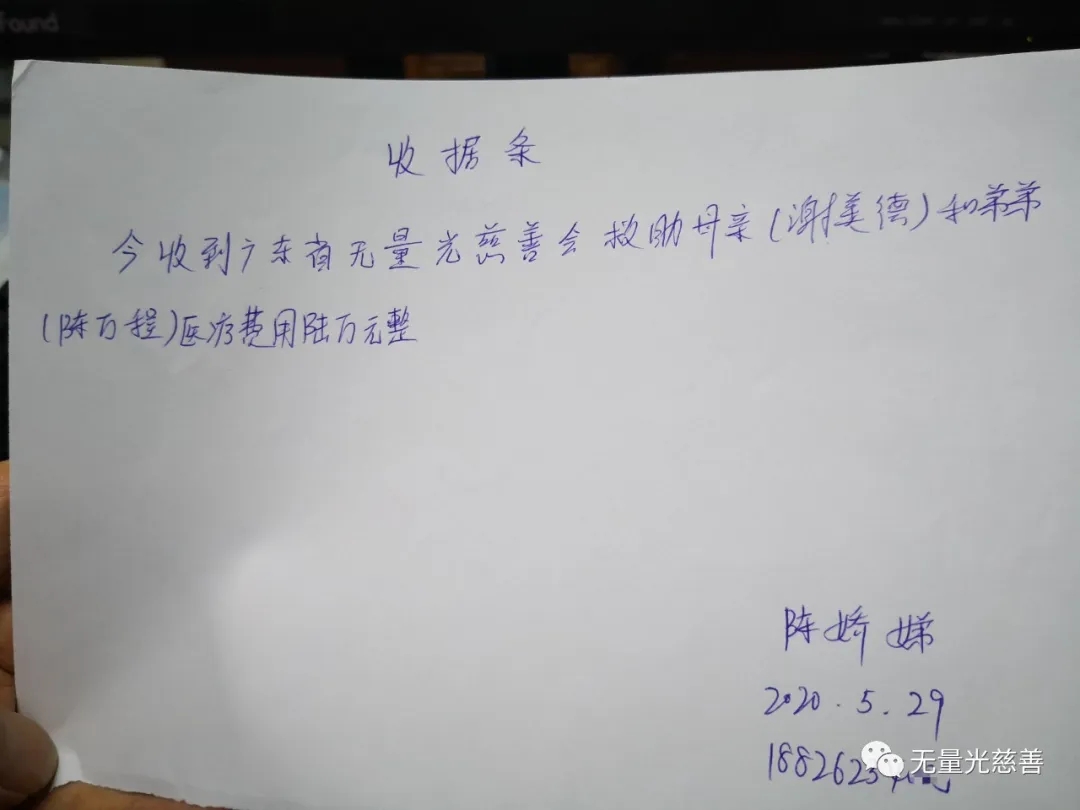 Found
收据条
今收到广东省无量光慈善会救助母亲(谢美德)和弟弟
(陈万程)医疗费用陆万元整
陈娇娣
2020.5.29
1882623
无量光慈善